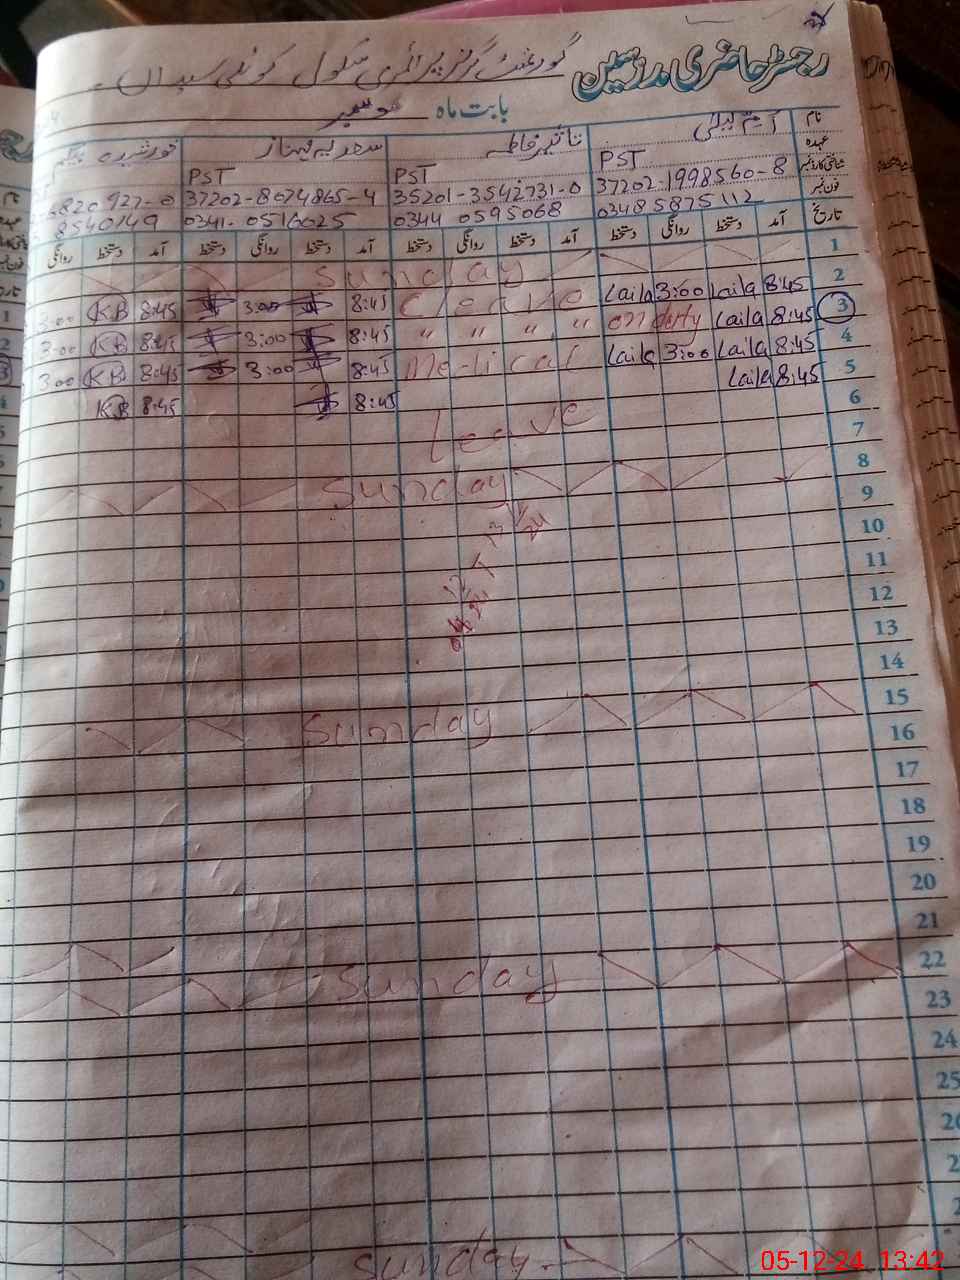 رجسٹر حاضری مدرسین گورنمنٹ گرلز پرائمری سکول کوٹلی سیداں
بابت ماہ
نام تاثیر فاطمہ سعدیہ مہناز خورشیدہ بیگم
عہدہ PST PST PST
شناختی کارڈ نمبر 37202-1998560-8 35201-3542731-0 37202-8074865-4 820927-0
فون نمبر 03485875112 0344 0595068 0341-0516025 8540149
تاریخ آمد دستخط روانگی دستخط آمد دستخط روانگی دستخط آمد دستخط روانگی دستخط آمد دستخط روانگی
1 Sunday
2 8:45 Laila 3:00 Laila C leave 8:45 3:00 8:45 KB 3:00
3 8:45 Laila on duty " " " " 8:45 3:00 8:45 KB 3:00
4 8:45 Laila 3:00 Laila Medical 8:45 3:00 8:45 KB 3:00
5 8:45 Laila 8:45 8:45 KB
6 Leave
7
8 Sunday
9
10
11
12
13
14
15 Sunday
16
17
18
19
20
21
22 Sunday
23
24
25
Sunday
05-12-24 13:42